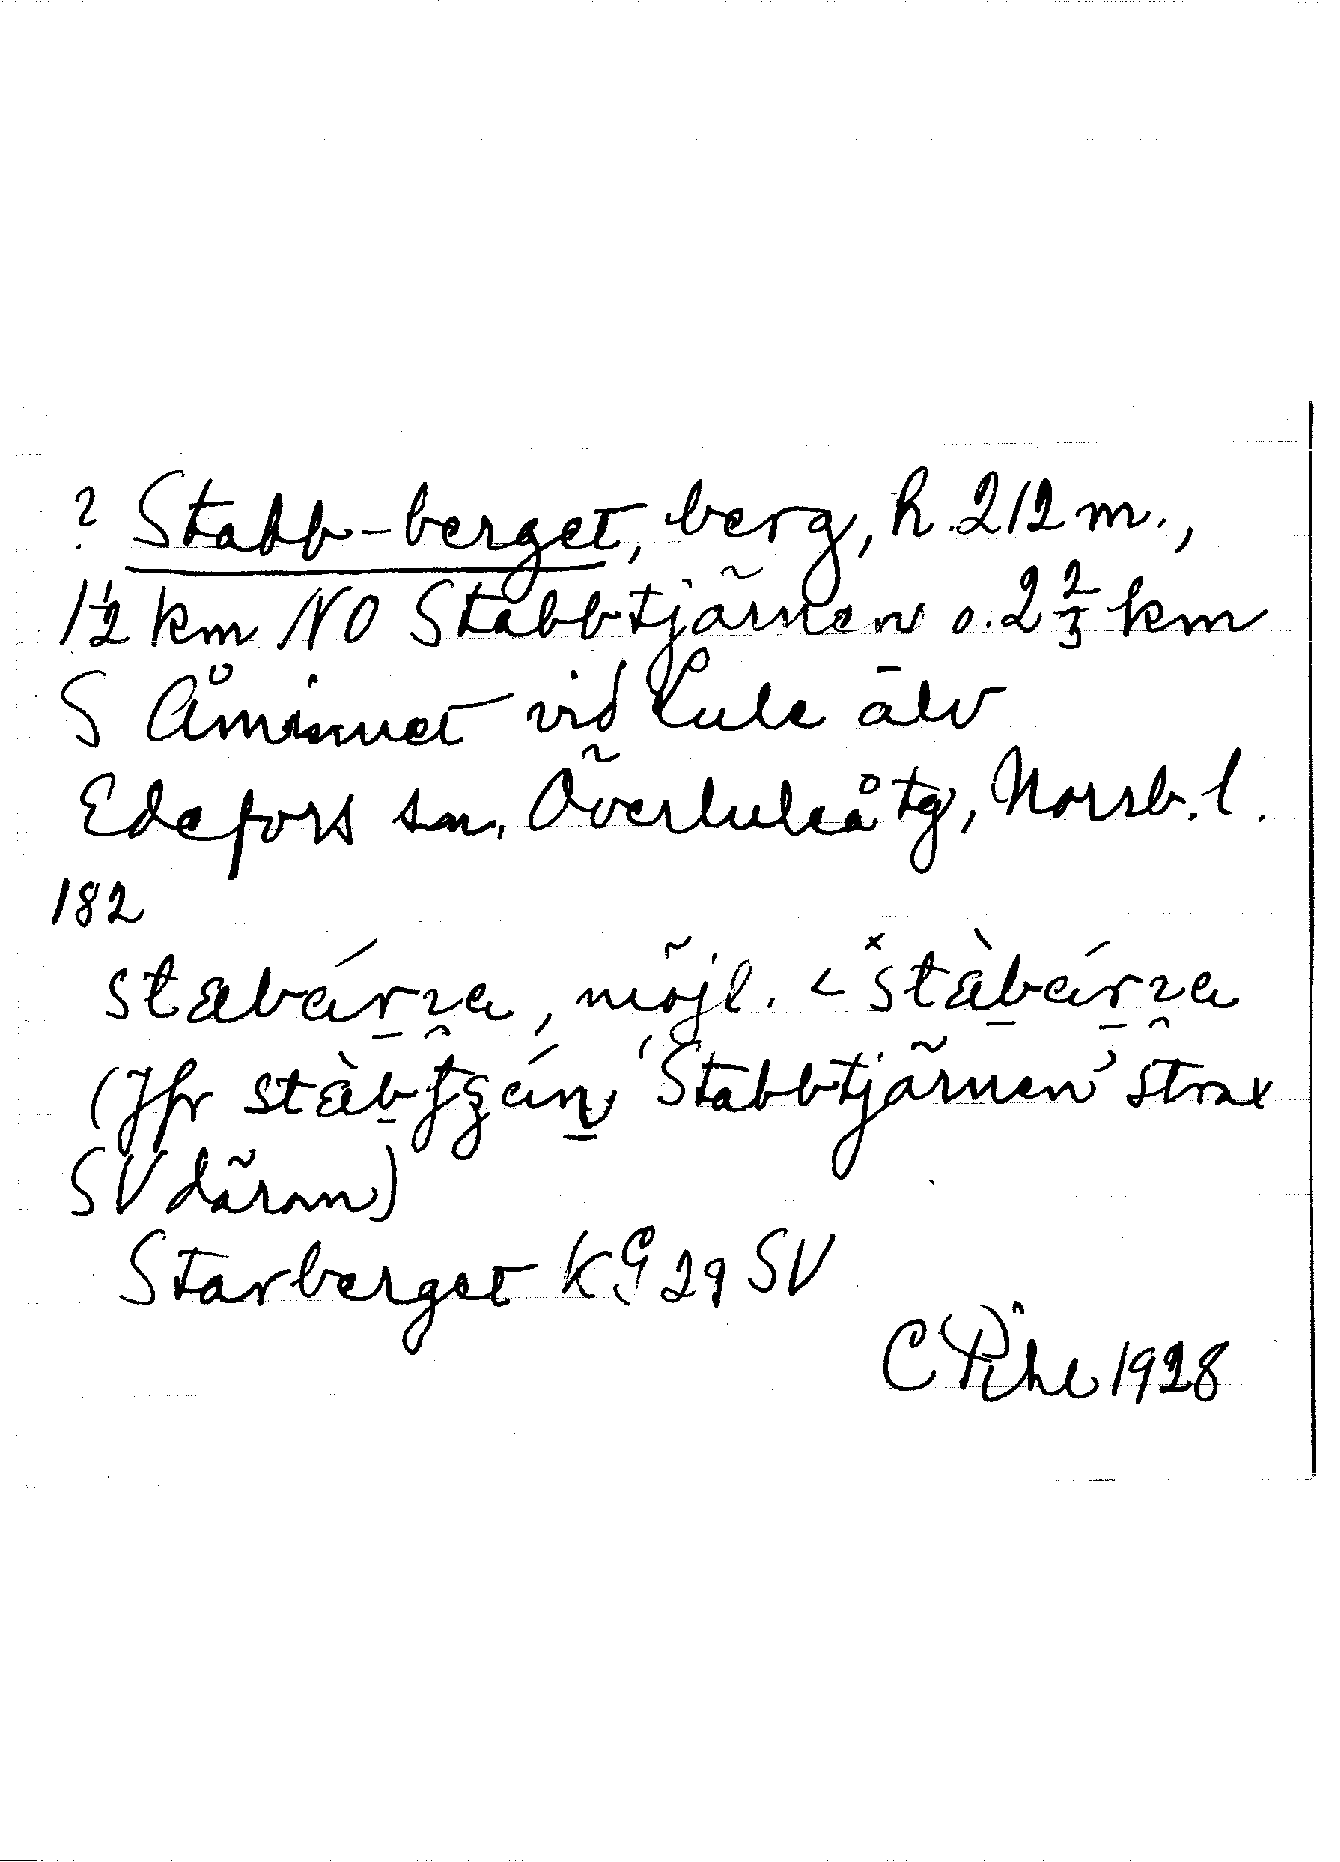 ? Stabb-berget, berg, h. 212 m.,
1½ km NO Stabbtjärnen o. 2 2/3 km
S Åminnet vid Lule älv
Edefors sn, Överluleå tg, Norrb. l.
182
möjl. <
(Jfr 'Stabbtjärnen' strax
SV därom)
Starberget KG 29 SV
C Pihl 1928